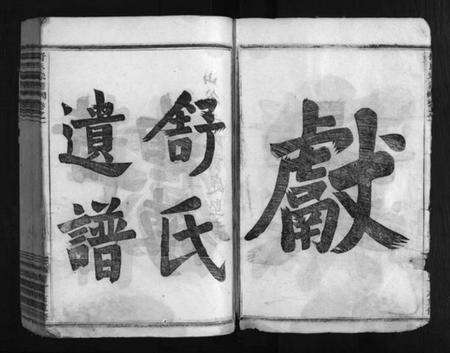 獻
舒氏
遺譜